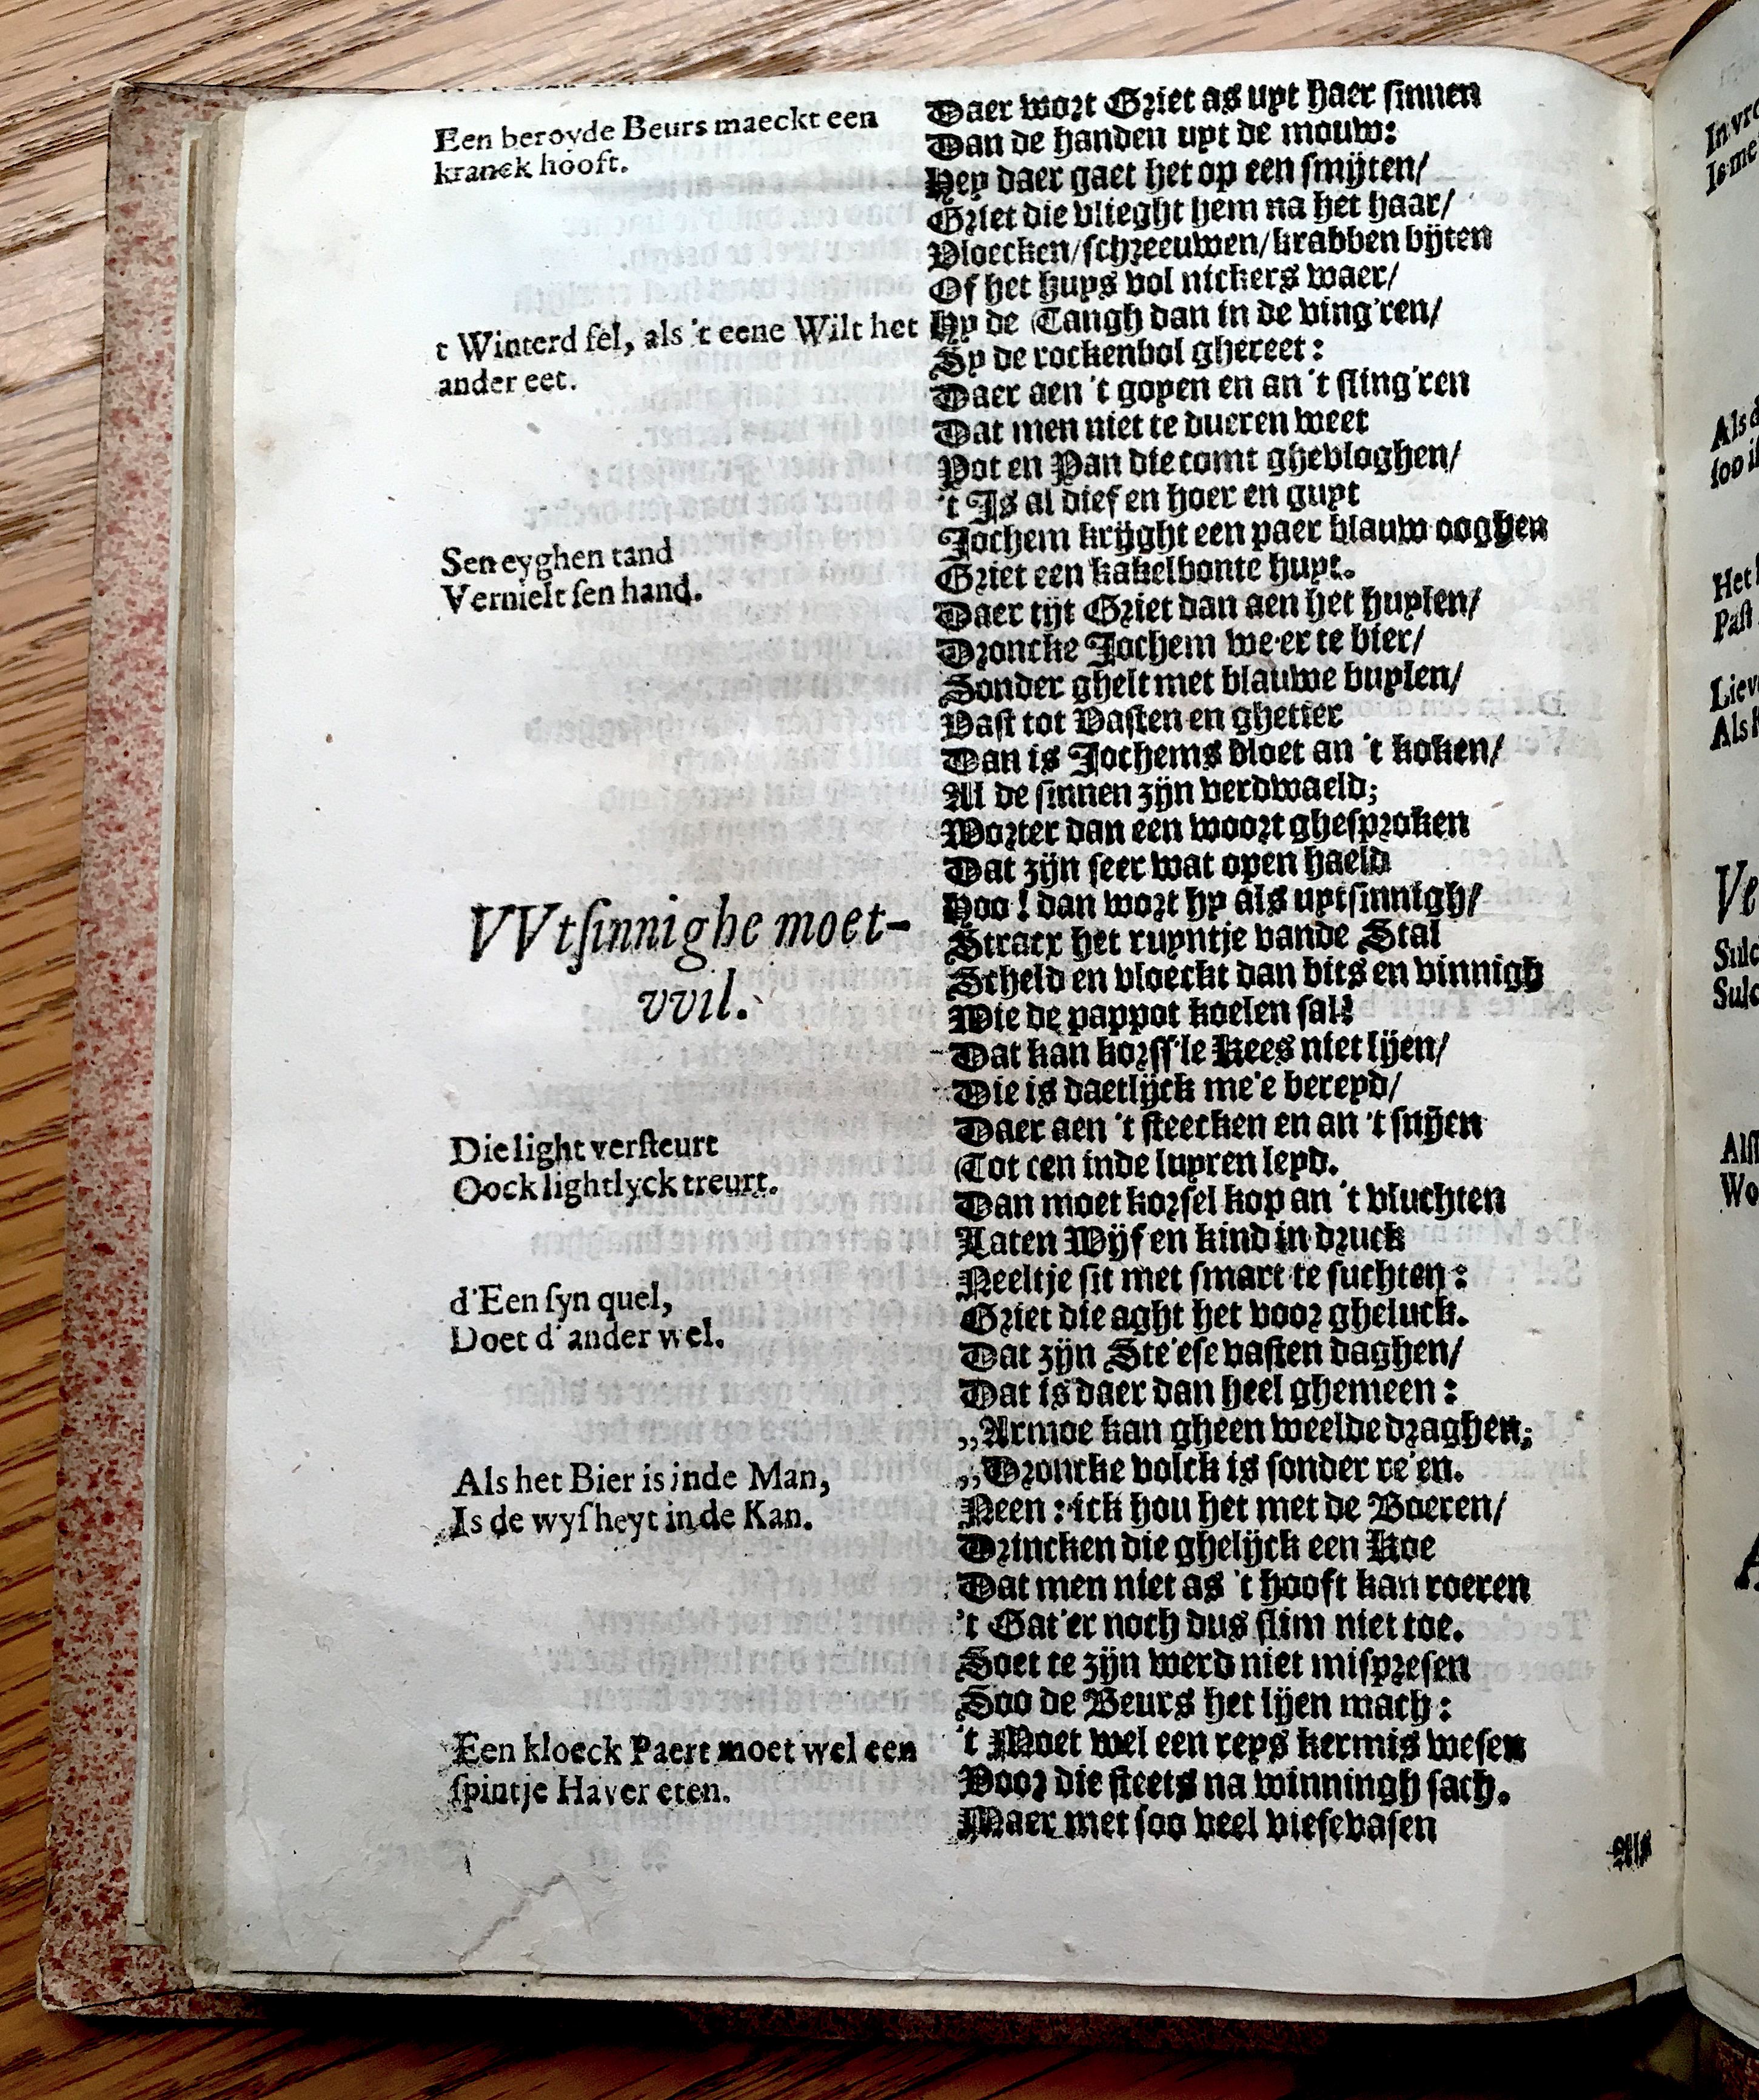 Een beroyde Beurs maeckt een
kranck hooft.
t Winterd fel, als 't eene Wilt het
ander eet.
Sen eyghen tand
Vernielt sen hand.
VVtsinnighe moet-
vvil.
Die light versteurt
Oock lightlyck treurt.
d'Een syn quel,
Doet d'ander wel.
Als het Bier is inde Man,
Is de wysheyt in de Kan.
Een kloeck Paert moet wel een
spintje Haver eten.
Daer wort Griet as uyt haer sinnen
Dan de handen uyt de mouw:
Hey daer gaet het op een smijten/
Griet die vlieght hem na het haar/
Vloecken/schreeuwen/krabben bijten
Of het huys vol nickers waer/
Hy de Tangh dan in de ving'ren/
Sy de rockenbol ghereet:
Daer aen 't goyen en an 't sling'ren
Dat men niet te dueren weet
Pot en Pan die comt ghevloghen/
't Is al dief en hoer en guyt
Jochem krijght een paer blauw ooghen
Griet een kakelbonte huyt.
Daer tijt Griet dan aen het huylen/
Droncke Jochem we'er te bier/
Sonder ghelt met blauwe buylen/
Vast tot Vasten en ghetier
Dan is Jochems bloet an 't koken/
Al de sinnen zijn verdwaeld;
Worter dan een woort ghesproken
Dat zijn seer wat open haeld
Hoo! dan wort hy als uytsinnigh/
Stracx het ruyntje vande Stal
Scheld en vloeckt dan bits en vinnigh
Wie de pappot koelen sal!
Dat kan korss'le Kees niet lijen/
Die is daetlijck me'e bereyd/
Daer aen 't steecken en an 't snijen
Tot een inde luyren leyd.
Dan moet korsel kop an 't vluchten
Laten Wijf en kind in druck
Neeltje sit met smart te suchten:
Griet die aght het voor gheluck.
Dat zijn Ste'ese vasten daghen/
Dat is daer dan heel ghemeen:
,,Armoe kan gheen weelde draghen;
,,Droncke volck is sonder re'en.
Neen: ick hou het met de Boeren/
Drincken die ghelijck een Koe
Dat men niet as 't hooft kan roeren
't Gat'er noch dus slim niet toe.
Soet te zijn werd niet mispresen
Soo de Beurs het lijen mach:
't Moet wel een reys kermis wesen
Voor die steets na winningh sach.
Maer met soo veel viesevasen